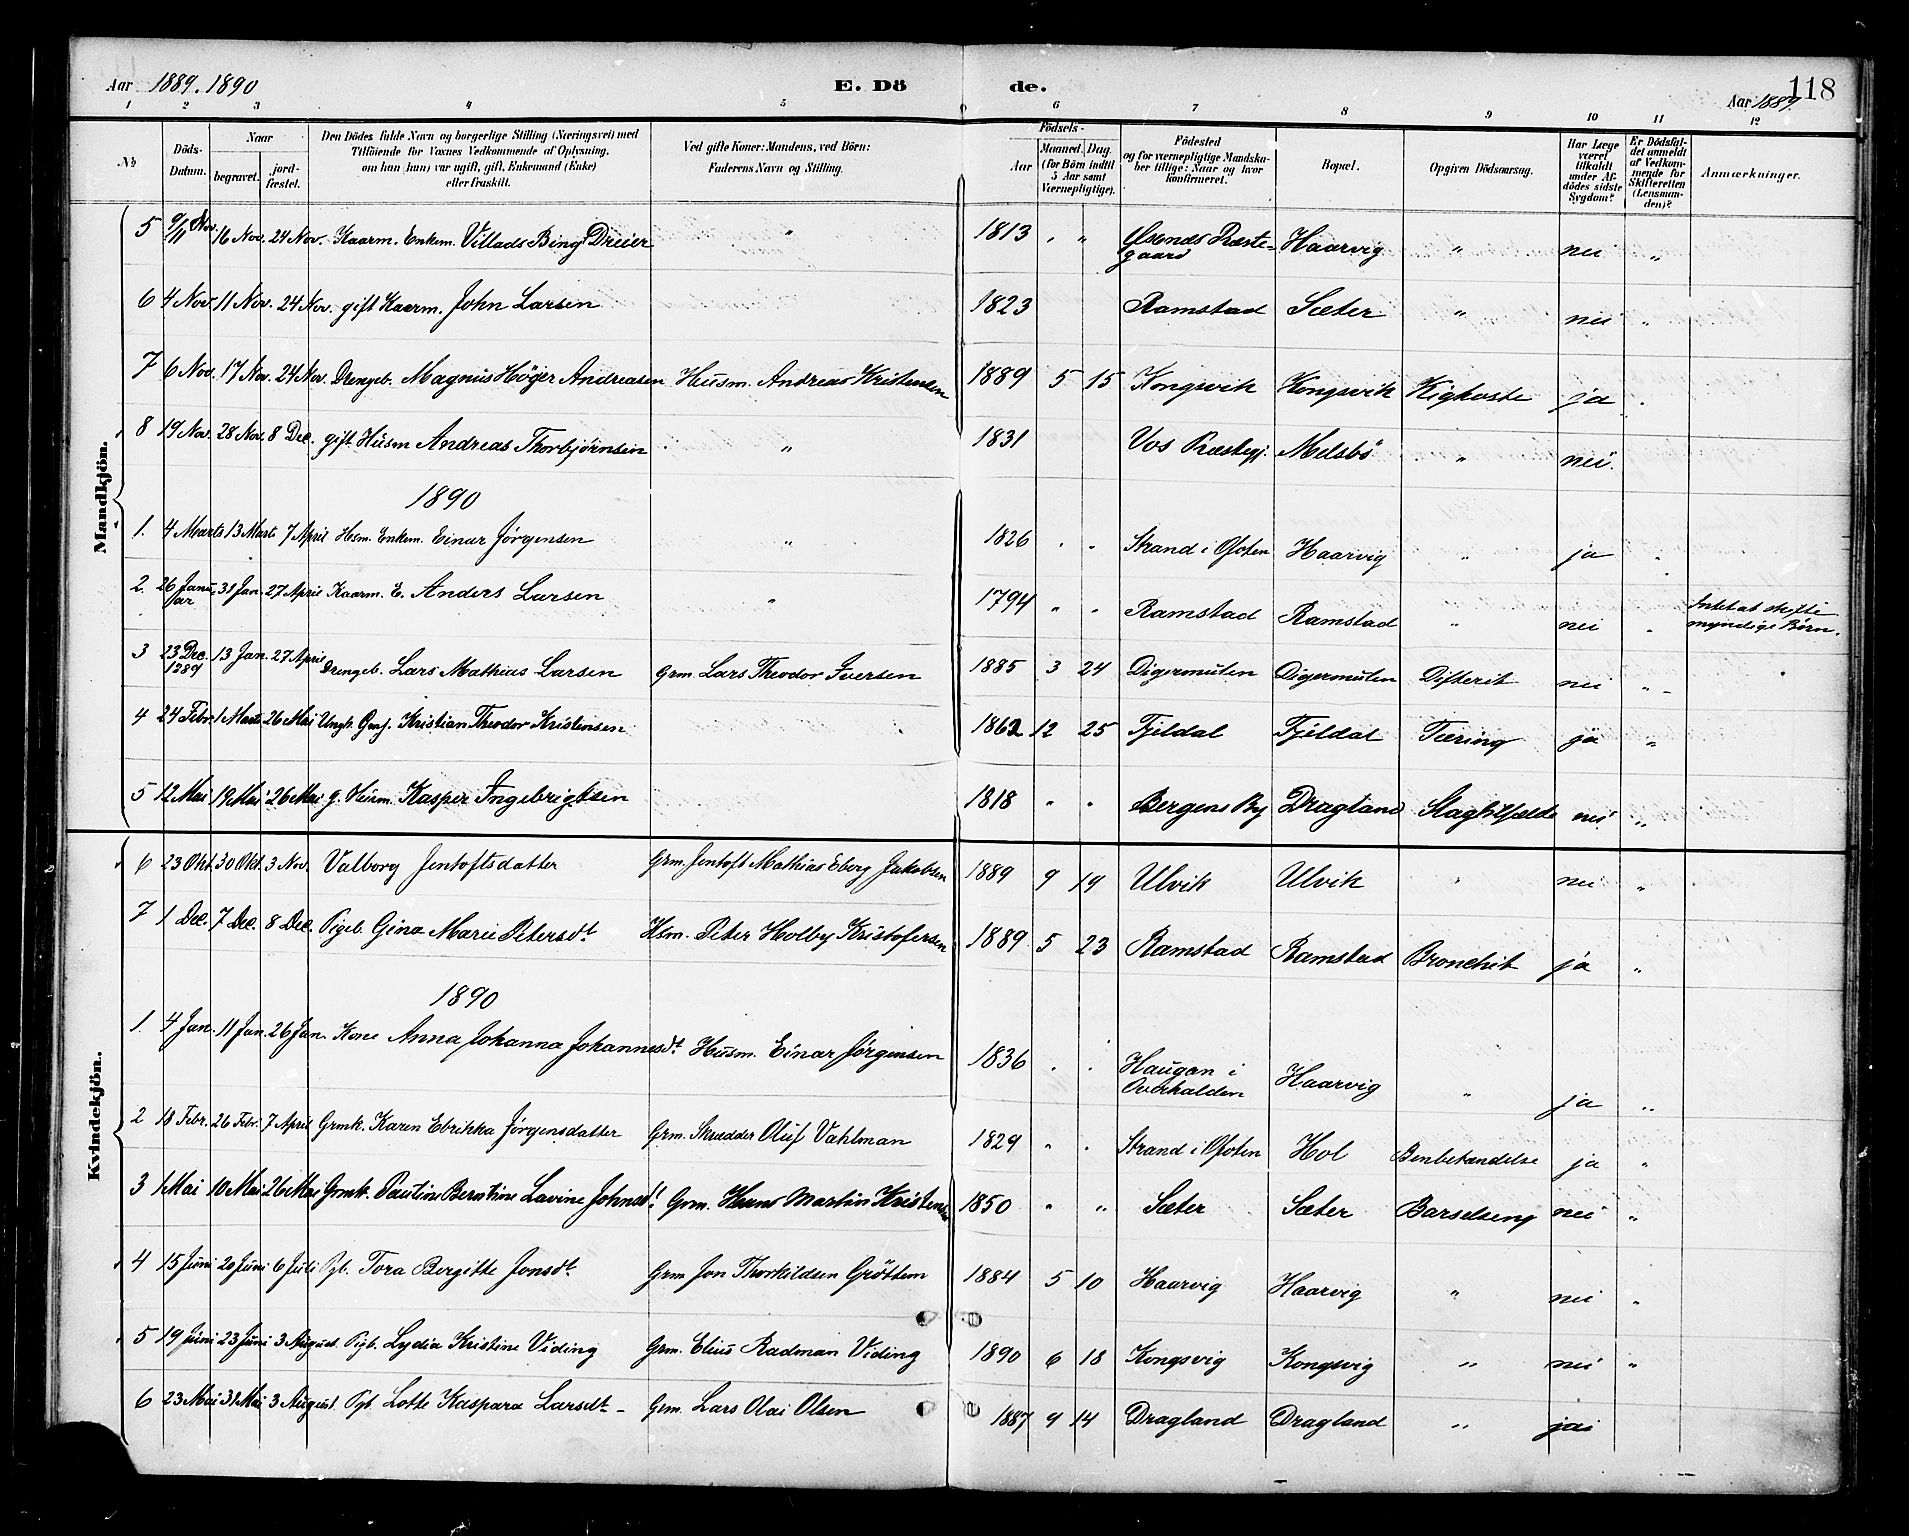 Aar 1889. 1890 E. Dö de. 118
Aar 1889.
1 2 3 4 5 6 7 8 9 10 11 12
No
Döds-Datum.
Naar
begravet.
jord-fæstet.
Den Dödes fulde Navn og borgerlige Stilling (Næringsvei) med
Tilföiende for Voxnes Vedkommende af Oplysning,
om han (hun) var ugift, gift, Enkemand (Enke)
eller fraskilt.
Ved gifte Koner: Mandens, ved Börn:
Faderens Navn og Stilling.
Födsels-
Aar
Maaned. Dag.
(for Börn indtil
5 Aar samt
Værnepligtige).
Födested
og for værnepligtige Mandska-
ber tillige: Naar og hvor
konfirmeret.
Bopæl.
Opgiven Dödsaarsag.
Har Læge
været
tilkaldt
under Af-
dödes sidste
Sygdom?
Er Dödsfal-
det anmeldt
af Vedkom-
mende for
Skifteretten
(Lensman-
den)?
Anmærkninger.
Mandkjön.
5 9/11 Nov. 16 Nov. 24 Nov. Kaarm. Enkem. Villads Bing Dreier " 1813 " " Øsenes Præste-
gaard Haarvig " nei "
6 4 Nov. 11 Nov. 24 Nov. gift Kaarm. John Larsen 1823 Ramstad Sæter " nei "
7 6 Nov. 17 Nov. 24 Nov. Drengeb. Magnus Höger Andreasen Husm. Andreas Kristensen 1889 5 15 Kongsvik Kongsvik Kighoste ja "
8 19 Nov. 28 Nov. 8 Dec. gift Husm Andreas Thorbjørnsen " 1831 Vos Præstegj. Melsbö " nei.
1890
1. 4 Marts 13 Marts 7 April Hsm. Enkem. Einar Jørgensen " 1826 " " Strand i Ofoten Haarvig " ja "
2. 26 Janu-
ar 31 Jan. 27 April Kaarm. E. Anders Larsen " 1794 " " Ramstad Ramstad " nei " Intet at skifte
myndige Børn.
3 23 Dec.
1289 13 Jan. 27 April Drengeb. Lars Mathias Larsen Grm. Lars Theodor Iversen 1885 3 24 Digermulen Digermulen Difterit nei "
4 24 Febr. 1 Marts 26 Mai Ungk. Kristian Theodor Kristensen 1862 12 25 Fjeldal Fjeldal Tæring ja "
5 12 Mai 19 Mai 26 Mai g. Husm. Kasper Ingebrigtsen 1818 " " Bergens By Dragland Slagtilfælde nei "
Kvindekjön.
6 23 Okt. 30 Okt. 3 Nov. Valborg Jentoftsdatter Grm. Jentoft Mathias Eberg Jakobsen 1889 9 19 Ulvik Ulvik " nei "
7 1 Dec. 7 Dec. 8 Dec. Pigeb. Gina Marie Petersdt. Hsm. Peter Holby Kristofersen 1889 5 23 Ramstad Ramstad Bronchit ja "
1890
1. 4 Jan. 11 Jan. 26 Jan. Kone Anna Johanna Johannesdt. Husm. Einar Jørgensen 1836 " " Haugan i
Overhalden Haarvig " ja "
2 18 Febr. 26 Febr. 7 April Grmk. Karen Ebrikka Jørgensdatter Grm. Skrædder Oluf Vahlman 1829 " " Strand i Ofoten Hol Benbetændelse ja "
3 1 Mai 10 Mai 26 Mai Grmk. Pauline Berntine Lavine Johnsdt. Grm. Hans Martin Kristensen 1850 " " Sæter Sæter Barselseng nei "
4 15 Juni 20 Juni 6 Juli Pgb. Tora Bergitte Jonsdt. Grm Jon Thorkildsen Grøttem 1884 5 10 Haarvig Haarvig " nei "
5 19 Juni 23 Juni 3 August. Pigb. Lydia Kristine Viding Grm. Elius Radman Viding 1890 6 18 Kongsvig Kongsvig " nei "
6 23 Mai 31 Mai 3 August. Pgb. Lotte Kaspara Larsdt. Grm. Lars Olai Olsen 1887 9 14 Dragland Dragland " ja